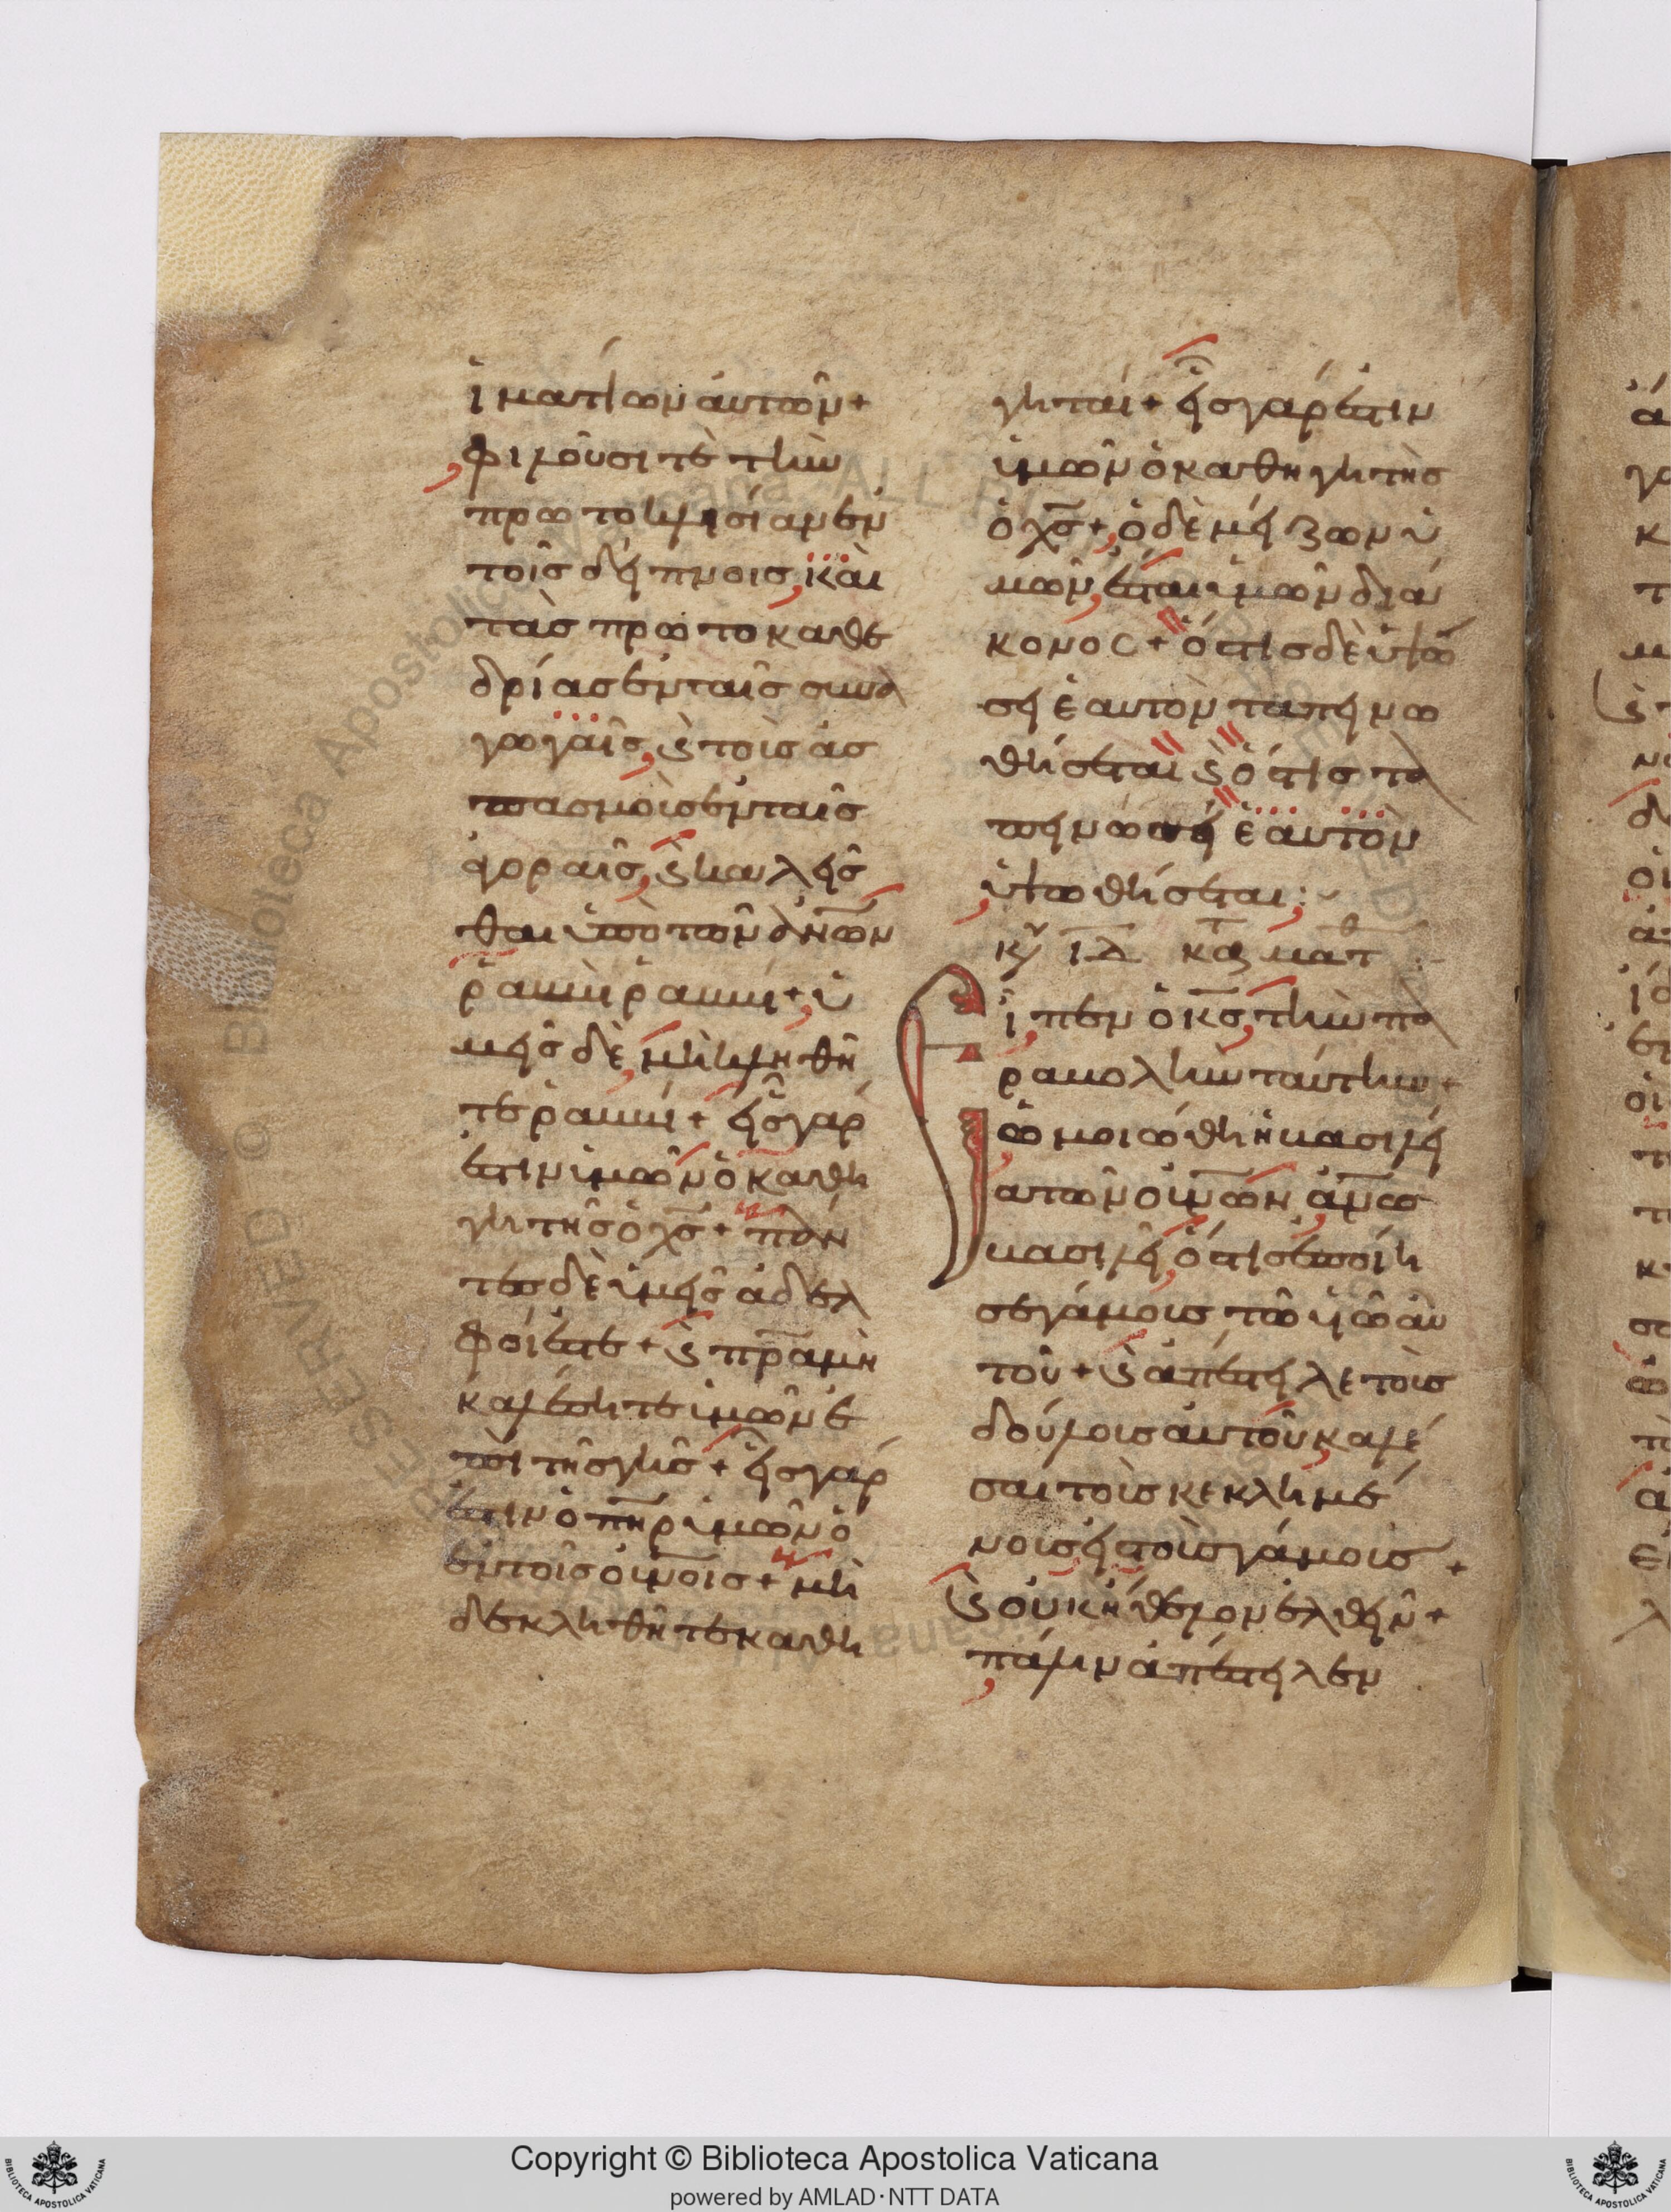 ἱματίων αὐτῶν+
φιλοῦσι τὲ τὴν
πρωτοκλησίαν ἐν
τοῖς δείπνοις, καὶ
τὰς πρωτοκαθε
δρίας ἐν ταῖς συνα
γωγαῖς, ϗ τοὶς ἀσ
πασμοὶς ἐν ταῖς
ἀγοραῖς, ϗ καλεῖσ
θαι ὑπὸ τῶν ἀν̅ων
ῥαββὶ ῥαββί+ ὑ
μεῖς δὲ, μὴ κληθῆ
τε ῥαββί+ εἷς γάρ
ἐστιν ὑμῶν ὁ καθη
γητῆς ὁ χ̅ς+ πάν
τες δὲ ὑμεῖς ἀδελ
φοί ἐστε+ ϗ πρ̅α μὴ
καλέσητε ὑμῶν ἐ
πὶ τῆς γῆς+ εἷς γάρ
ἐστιν ὁ πη̅ρ ὑμῶν ὁ
ἐν τοῖς οὐν̅οις+ μὴ
δὲ κληθῆτε καθη
γηταί+ εἷς γάρ ἐστιν
ὑμῶν ὁ καθηγητὴς
ὁ χ̅ς+ ὁ δὲ μείζων ὑ
μῶν, ἔσται ὑμῶν διά
κονος+ ὅστις δὲ ὑψώ
σει ἑαυτὸν ταπεινω
θήσεται ϗ ὅστις τα
πεινώσει ἑαυτὸν
ὑψωθήσεται:~
κυ ΙΔ ἐκ τ κατ ματθ
Εἶπεν ὁ κ̅ς, τὴν πα
ραβολὴν ταύτην+
ὡμοιώθη ἡ βασιλεί
α τῶν οὐν̅ων ἀν̅ω
βασιλεῖ, ὅστις ἐποίη
σε γάμους τῶ υἱῶ αὐ
τοῦ+ ϗ ἀπέστειλε τοὶς
δούλοις αὐτοῦ καλέ
σαι τοὶς κεκλημέ
νοις εἰς τοὶς γάμοις+
ϗ οὐκ ἤθελον ἐλθεῖν+
πάλιν ἀπέστειλεν
Copyright © Biblioteca Apostolica Vaticana
powered by AMLAD·NTT DATA